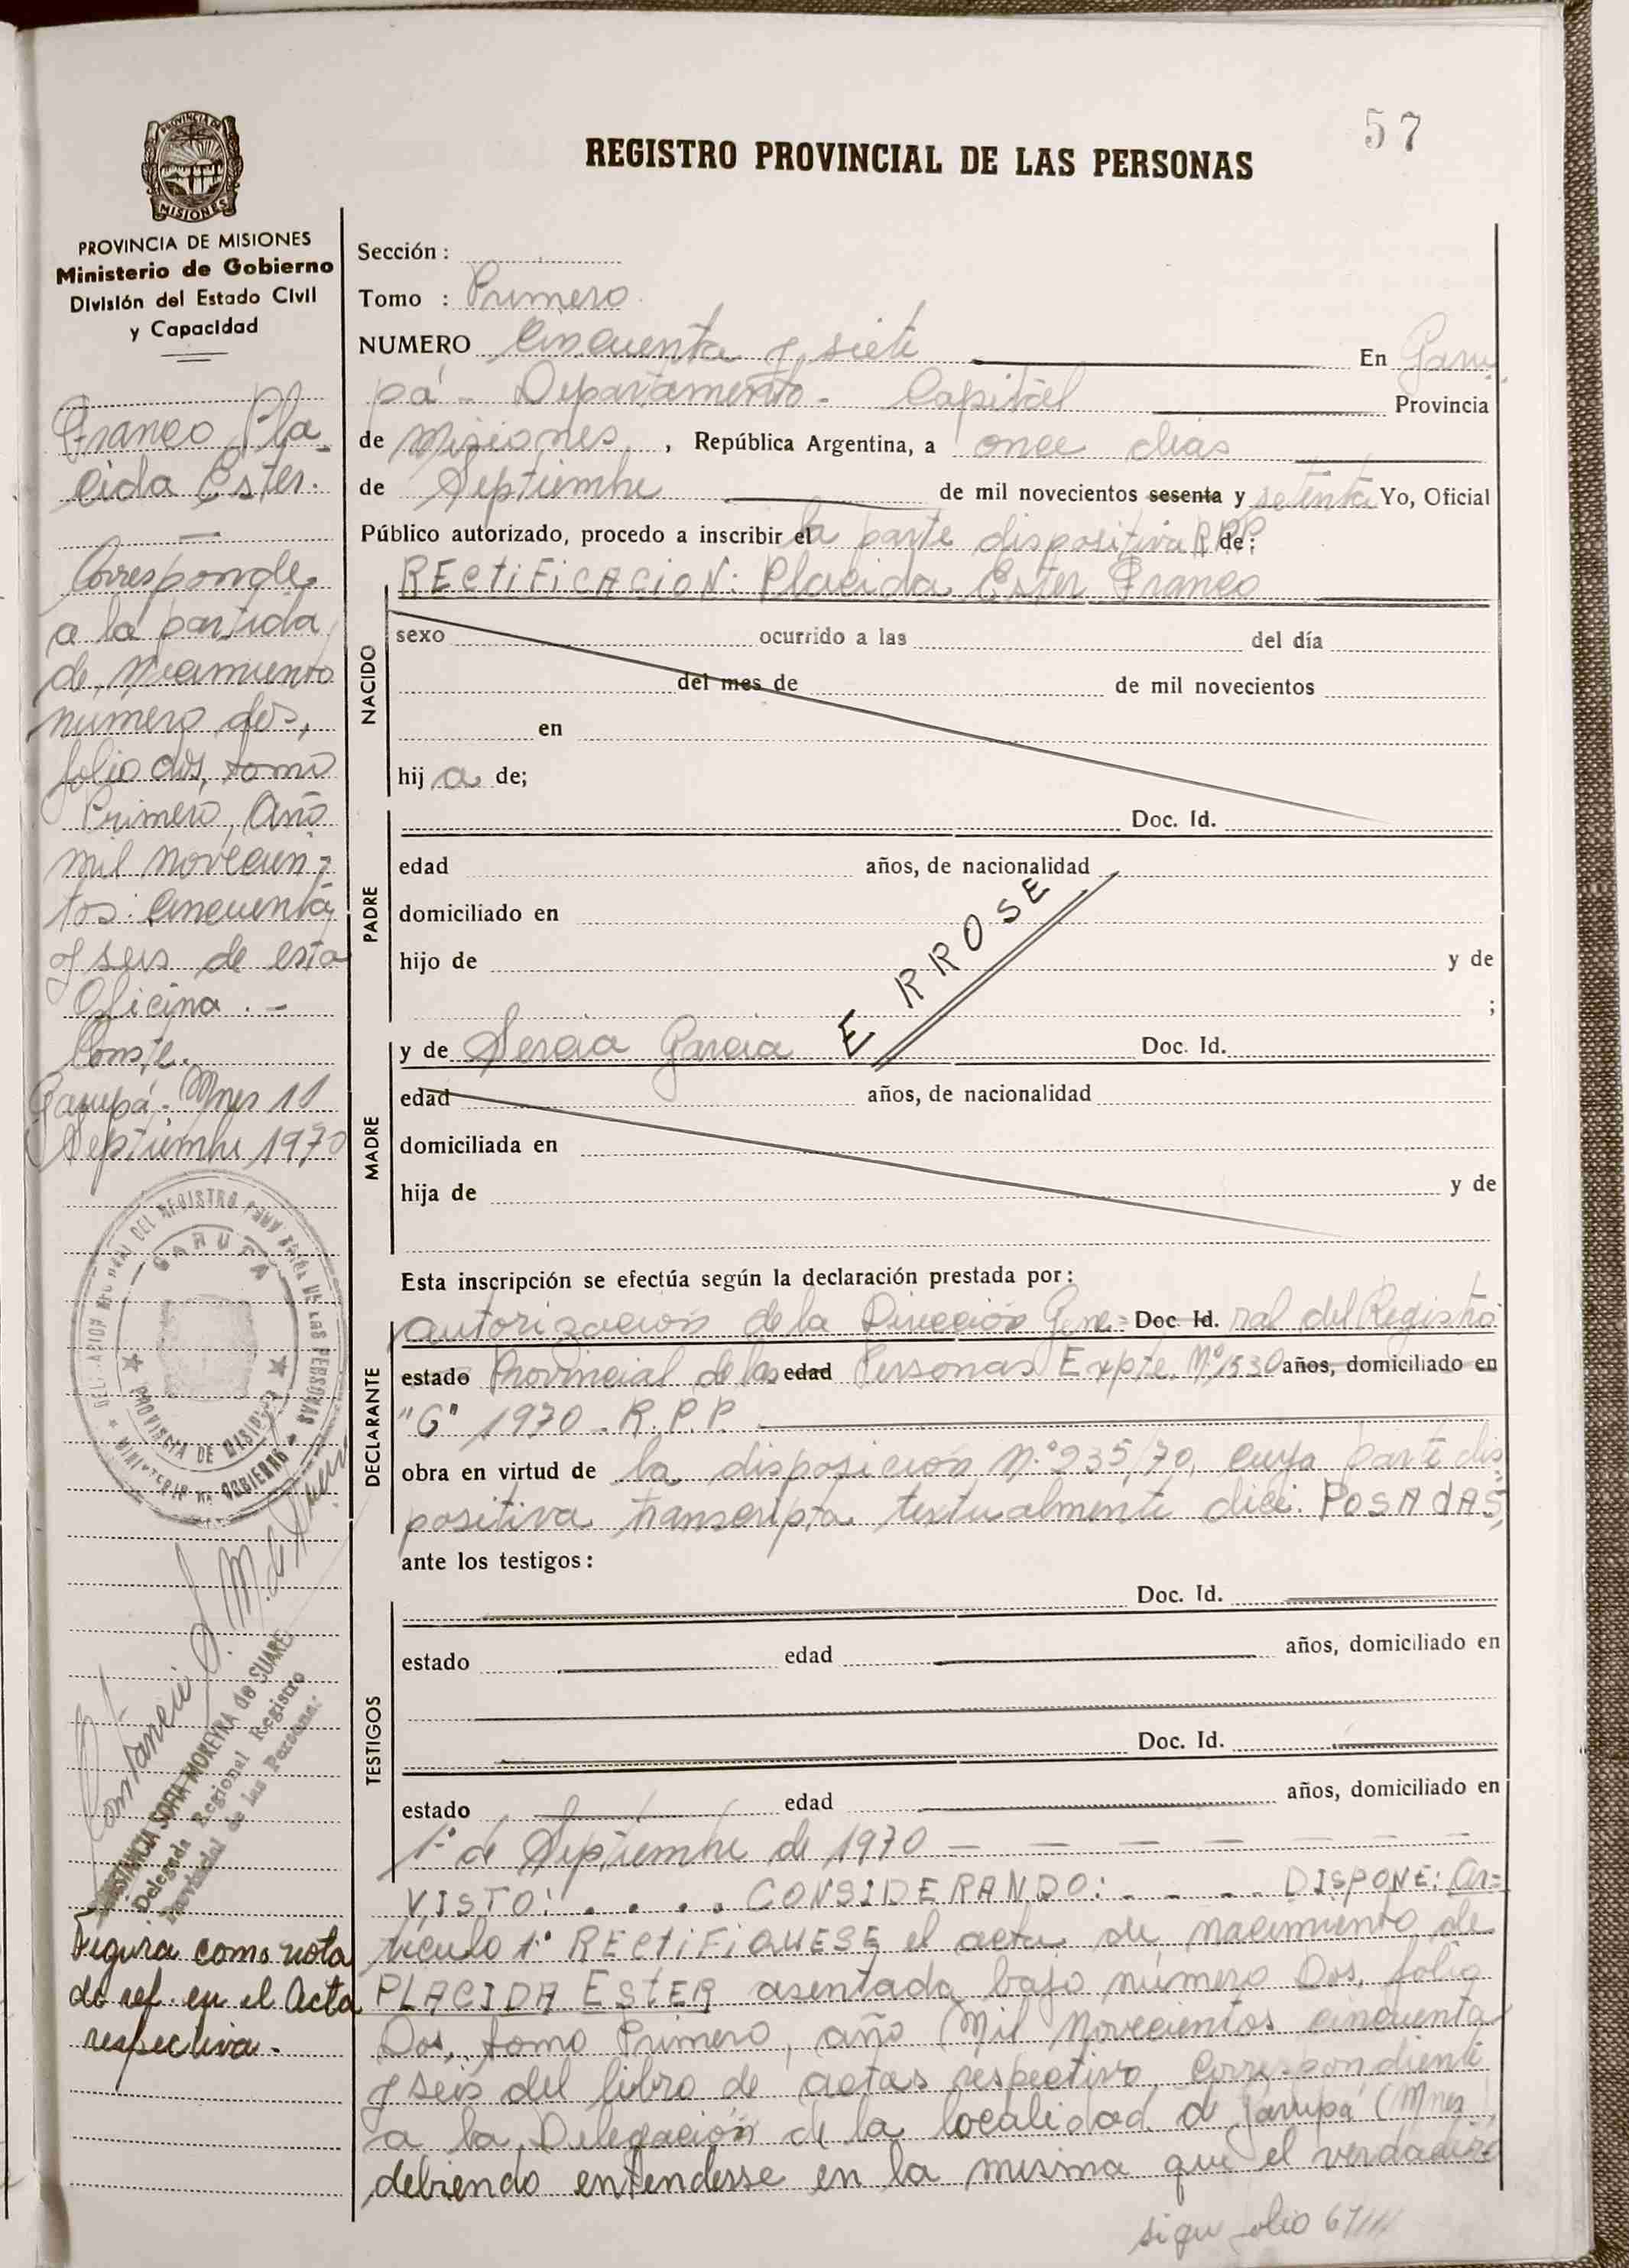 57
REGISTRO PROVINCIAL DE LAS PERSONAS
PROVINCIA DE
MISIONES
PROVINCIA DE MISIONES
Ministerio de Gobierno
División del Estado Civil
y Capacidad
Franco Pla-
cida Ester.
Corresponde
a la partida
de nacimiento
número dos,
folio dos, tomo
Primero, Año
mil novecien-
tos cincuenta
y seis de esta
Oficina.-
Conste.
Garupá- Mnes 11
Septiembre 1970
GARUPA
PROVINCIA DE MISIONES
MINISTERIO DE GOBIERNO
CONSTANCIA SOFIA MOREYRA de SUAREZ
Delegada Regional Registro
Provincial de las Personas
Figura como nota
de ref. en el Acta
respectiva.-
Sección :
Tomo : Primero
NUMERO Cincuenta y siete En Garu
pá - Departamento - Capital Provincia
de Misiones, República Argentina, a once dias
de Septiembre de mil novecientos sesenta y setenta Yo, Oficial
Público autorizado, procedo a inscribir el la parte dispositiva R.P.P. de:
RECTIFICACION: Placida Ester Franco
NACIDO
sexo ocurrido a las del día
del mes de de mil novecientos
en
hij a de;
PADRE
Doc. Id.
edad años, de nacionalidad
domiciliado en
hijo de y de
;
ERROSE
MADRE
y de Sercia Garcia Doc. Id.
edad años, de nacionalidad
domiciliada en
hija de y de
Esta inscripción se efectúa según la declaración prestada por:
DECLARANTE
autorización de la Dirección Gene= Doc. Id. ral del Registro
estado Provincial de las edad Personas Expte. Nº 1530 años, domiciliado en
"G" 1970 - R.P.P.
obra en virtud de la disposición Nº 235/70, cuya parte dis
positiva transcripta textualmente dice: POSADAS,
ante los testigos:
TESTIGOS
Doc. Id.
estado edad años, domiciliado en
Doc. Id.
estado edad años, domiciliado en
1º de Septiembre de 1970 - - - - - - -
VISTO: . . . . CONSIDERANDO: - - - - DISPONE: Ar=
tículo 1º RECTIFIQUESE el acta de nacimiento de
PLACIDA ESTER asentada bajo número Dos, folio
Dos, tomo Primero, año Mil Novecientos cincuenta
y seis del libro de actas respectivo, correspondiente
a la Delegación de la localidad de Garupá (Mnes)
debiendo entenderse en la misma que el verdadero
sigue folio 67///